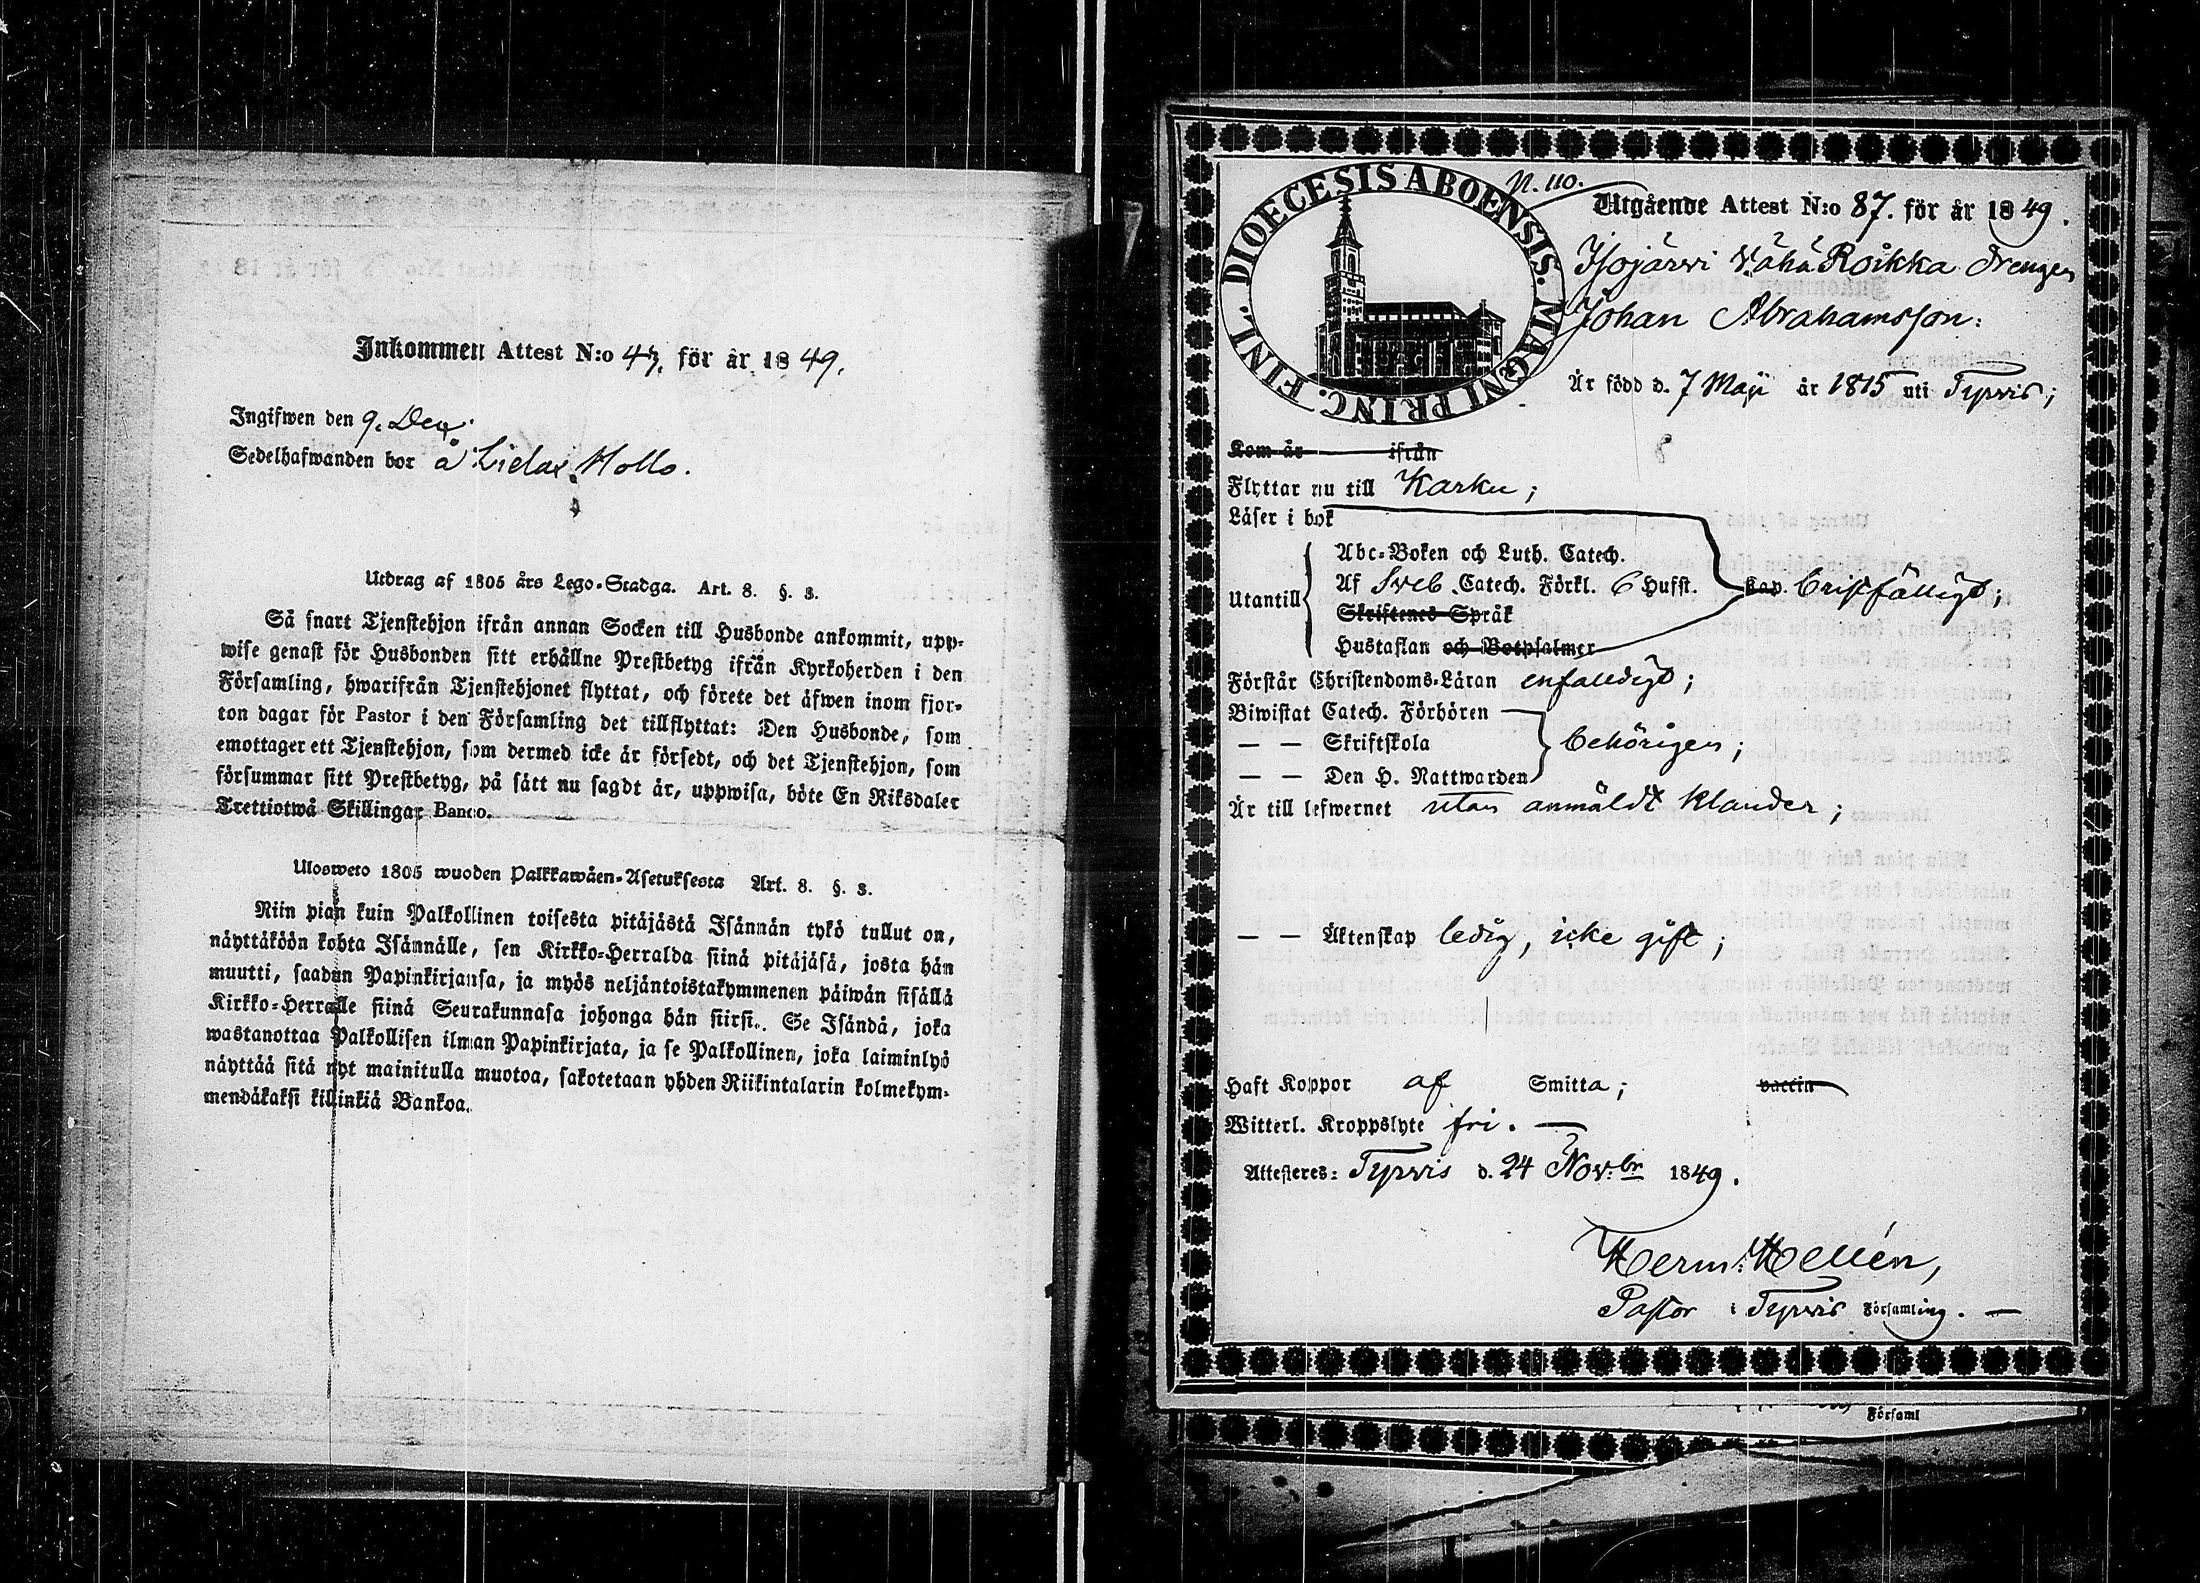 Inkommen Attest N:o 47. för år 1849.
Ingifwen den 9. Dec.
Sedelhafwanden bor å Liclax Hollo.
Utdrag af 1805 års Lego-Stadga. Art. 8. §. 3.
Så snart Tjenstehjon ifrån annan Socken till Husbonde ankommit, upp-
wise genast för Husbonden sitt erhållne Prestbetyg ifrån Kyrkoherden i den
Församling, hwarifrån Tjenstehjonet flyttat, och förete det äfwen inom fjor-
ton dagar för Pastor i den Församling det tillflyttat: Den Husbonde, som
emottager ett Tjenstehjon, som dermed icke är försedt, och det Tjenstehjon, som
försummar sitt Prestbetyg, på sätt nu sagdt är, uppwisa, böte En Riksdaler
Trettiotwå Skillingar Banco.
Ulosweto 1805 wuoden Palkkawäen-Asetuksesta Art. 8. §. 3.
Niin pian kuin Palkollinen toisesta pitäjästä Isännän tykö tullut on,
näyttäköön kohta Isännälle, sen Kirkko-Herralda siinä pitäjäsä, josta hän
muutti, saadun Papinkirjansa, ja myös neljäntoistakymmenen päiwän sisällä
Kirkko-Herralle siinä Seurakunnasa johonga hän siirsi. Se Isändä, joka
wastanottaa Palkollisen ilman Papinkirjata, ja se Palkollinen, joka laiminlyö
näyttää sitä nyt mainitulla muotoa, sakotetaan yhden Riikintalarin kolmekym-
mendäkaksi killinkiä Bankoa.
N. 110.
DIOECESIS ABOENSIS. MAGNI PRINC. FINL.
Utgående Attest N:o 87. för år 1849.
Isojärwi Wähä Roikka drengen
Johan Abrahamsson:
Är född d. 7 Maji år 1815 uti Tyrvis;
Kom år ifrån
Flyttar nu till Karku;
Läser i bok
Abc-Boken och Luth. Catech.
Utantill Af Sveb. Catech. Förkl. 6 Hufst. kap. bristfälligt;
Skriftenes Språk
Hustaflan och Botpsalmer
Förstår Christendoms-Läran enfaldigt;
Biwistat Catech. Förhören
— — Skriftskola behörigen;
— — Den H. Nattwarden
Är till lefwernet utan anmäldt klander;
— — Äktenskap ledig, icke gift;
Haft Koppor af Smitta; vaccin
Witterl. Kroppslyte fri. —
Attesteres: Tyrvis d. 24 Nov:br 1849.
Herm: Hellén,
Pastor i Tyrvis Församling. —
Församl